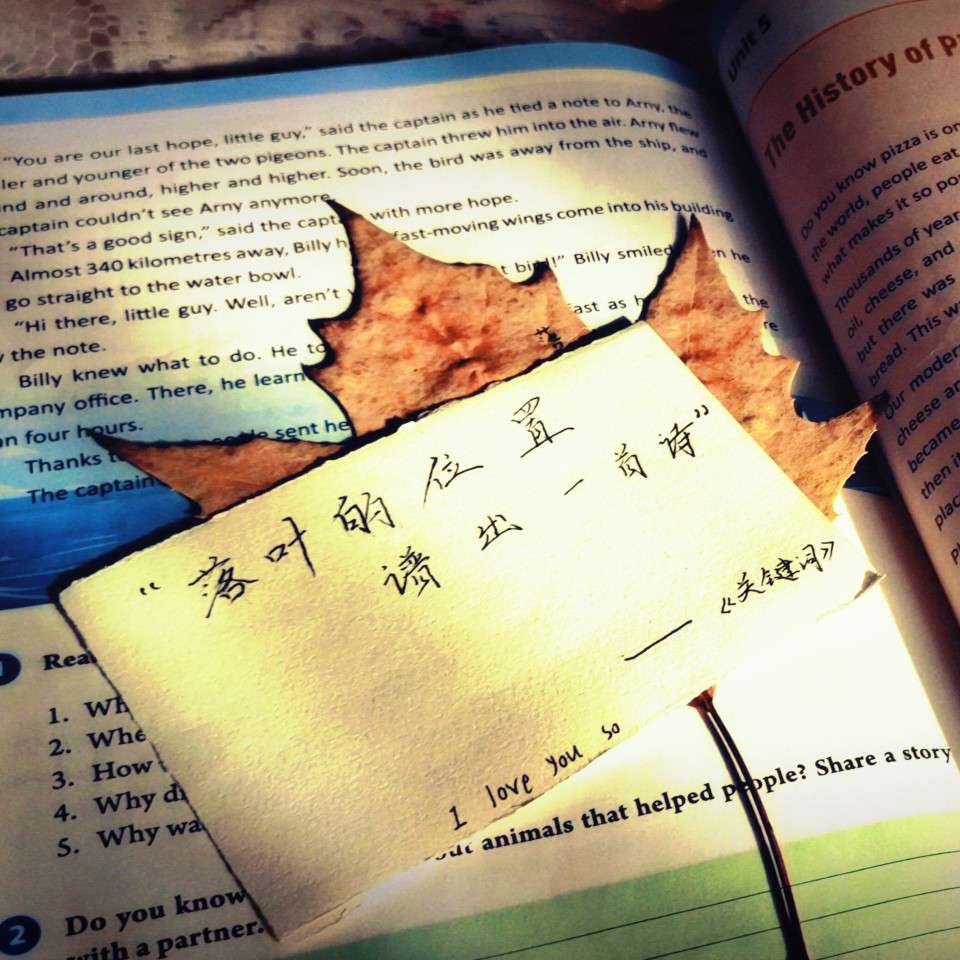 "You are our last hope, little guy," said the captain as he tied a note to Arny, the
ler and younger of the two pigeons. The captain threw him into the air. Arny flew
nd and around, higher and higher. Soon, the bird was away from the ship, and
captain couldn't see Arny anymore
"That's a good sign," said the capt with more hope.
Almost 340 kilometres away, Billy h fast-moving wings come into his building
go straight to the water bowl.
"Hi there, little guy. Well, aren't t bird!" Billy smiled n he
the note.
ast as h the
Billy knew what to do. He to re
mpany office. There, he learn
n four hours.
Thanks t sent he
The captain
“落叶的位置
谱出一首诗”
——《关键词》
I love you so
1 Rea
1. Wh
2. Whe
3. How
4. Why di
5. Why wa
2 Do you know out animals that helped people? Share a story
with a partner.
Unit 5
The History of P
Do you know pizza is on
the world, people eat
what makes it so po
Thousands of year
oil, cheese, and
but there was
bread. This w
Our modern
cheese an
became
then it
plac